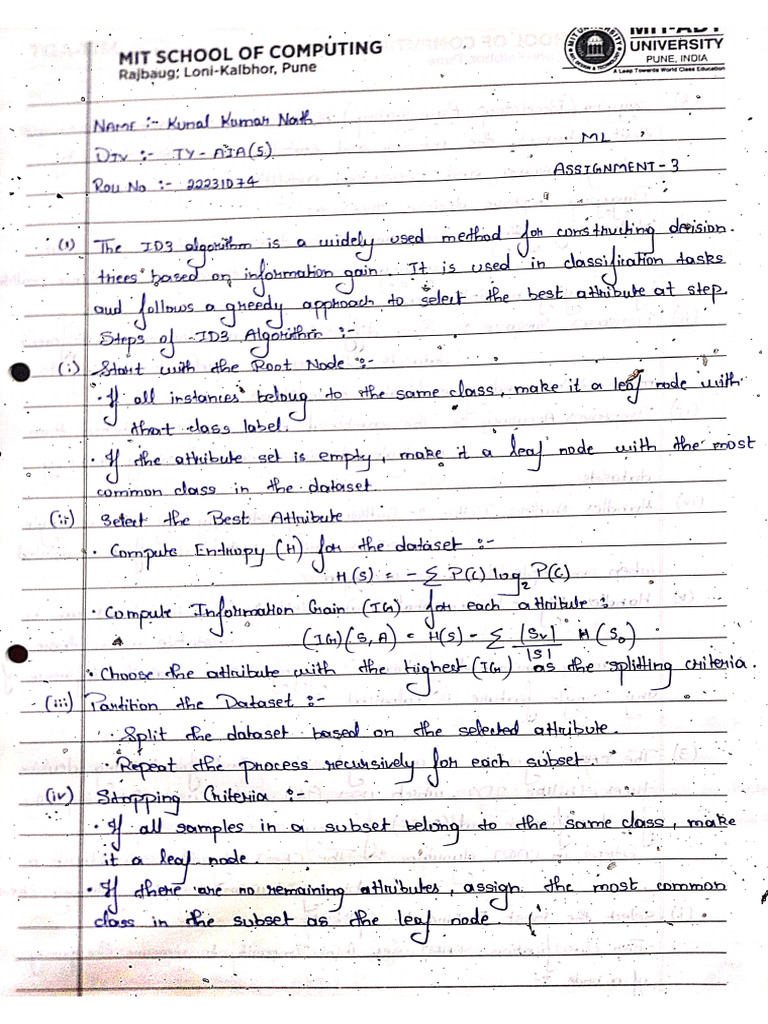 MIT SCHOOL OF COMPUTING
Rajbaug, Loni-Kalbhor, Pune
MIT-ADT
UNIVERSITY
PUNE, INDIA
A Leap Towards World Class Education
NAME :- Kunal Kumar Nath
DIV :- TY-AIA(5)
ROLL No :- 22231074
ML
ASSIGNMENT-3
(1) The ID3 algorithm is a widely used method for constructing decision
trees based on information gain. It is used in classification tasks
and follows a greedy approach to select the best attribute at step.
Steps of ID3 Algorithm :-
(i) Start with the Root Node :-
• If all instances belong to the same class, make it a leaf node with
that class label.
• If the attribute set is empty, make it a leaf node with the most
common class in the dataset
(ii) Select the Best Attribute
• Compute Entropy (H) for the dataset :-
H(S) = - Σ P(C) log₂ P(C)
• Compute Information Gain (IG) for each attribute :
(IG)(S, A) = H(S) - Σ |Sv|/|S| H(Sv)
• Choose the attribute with the highest (IG) as the splitting criteria.
(iii) Partition the Dataset :-
• Split the dataset based on the selected attribute.
• Repeat the process recursively for each subset
(iv) Stopping Criteria :-
• If all samples in a subset belong to the same class, make
it a leaf node.
• If there are no remaining attributes, assign the most common
class in the subset as the leaf node